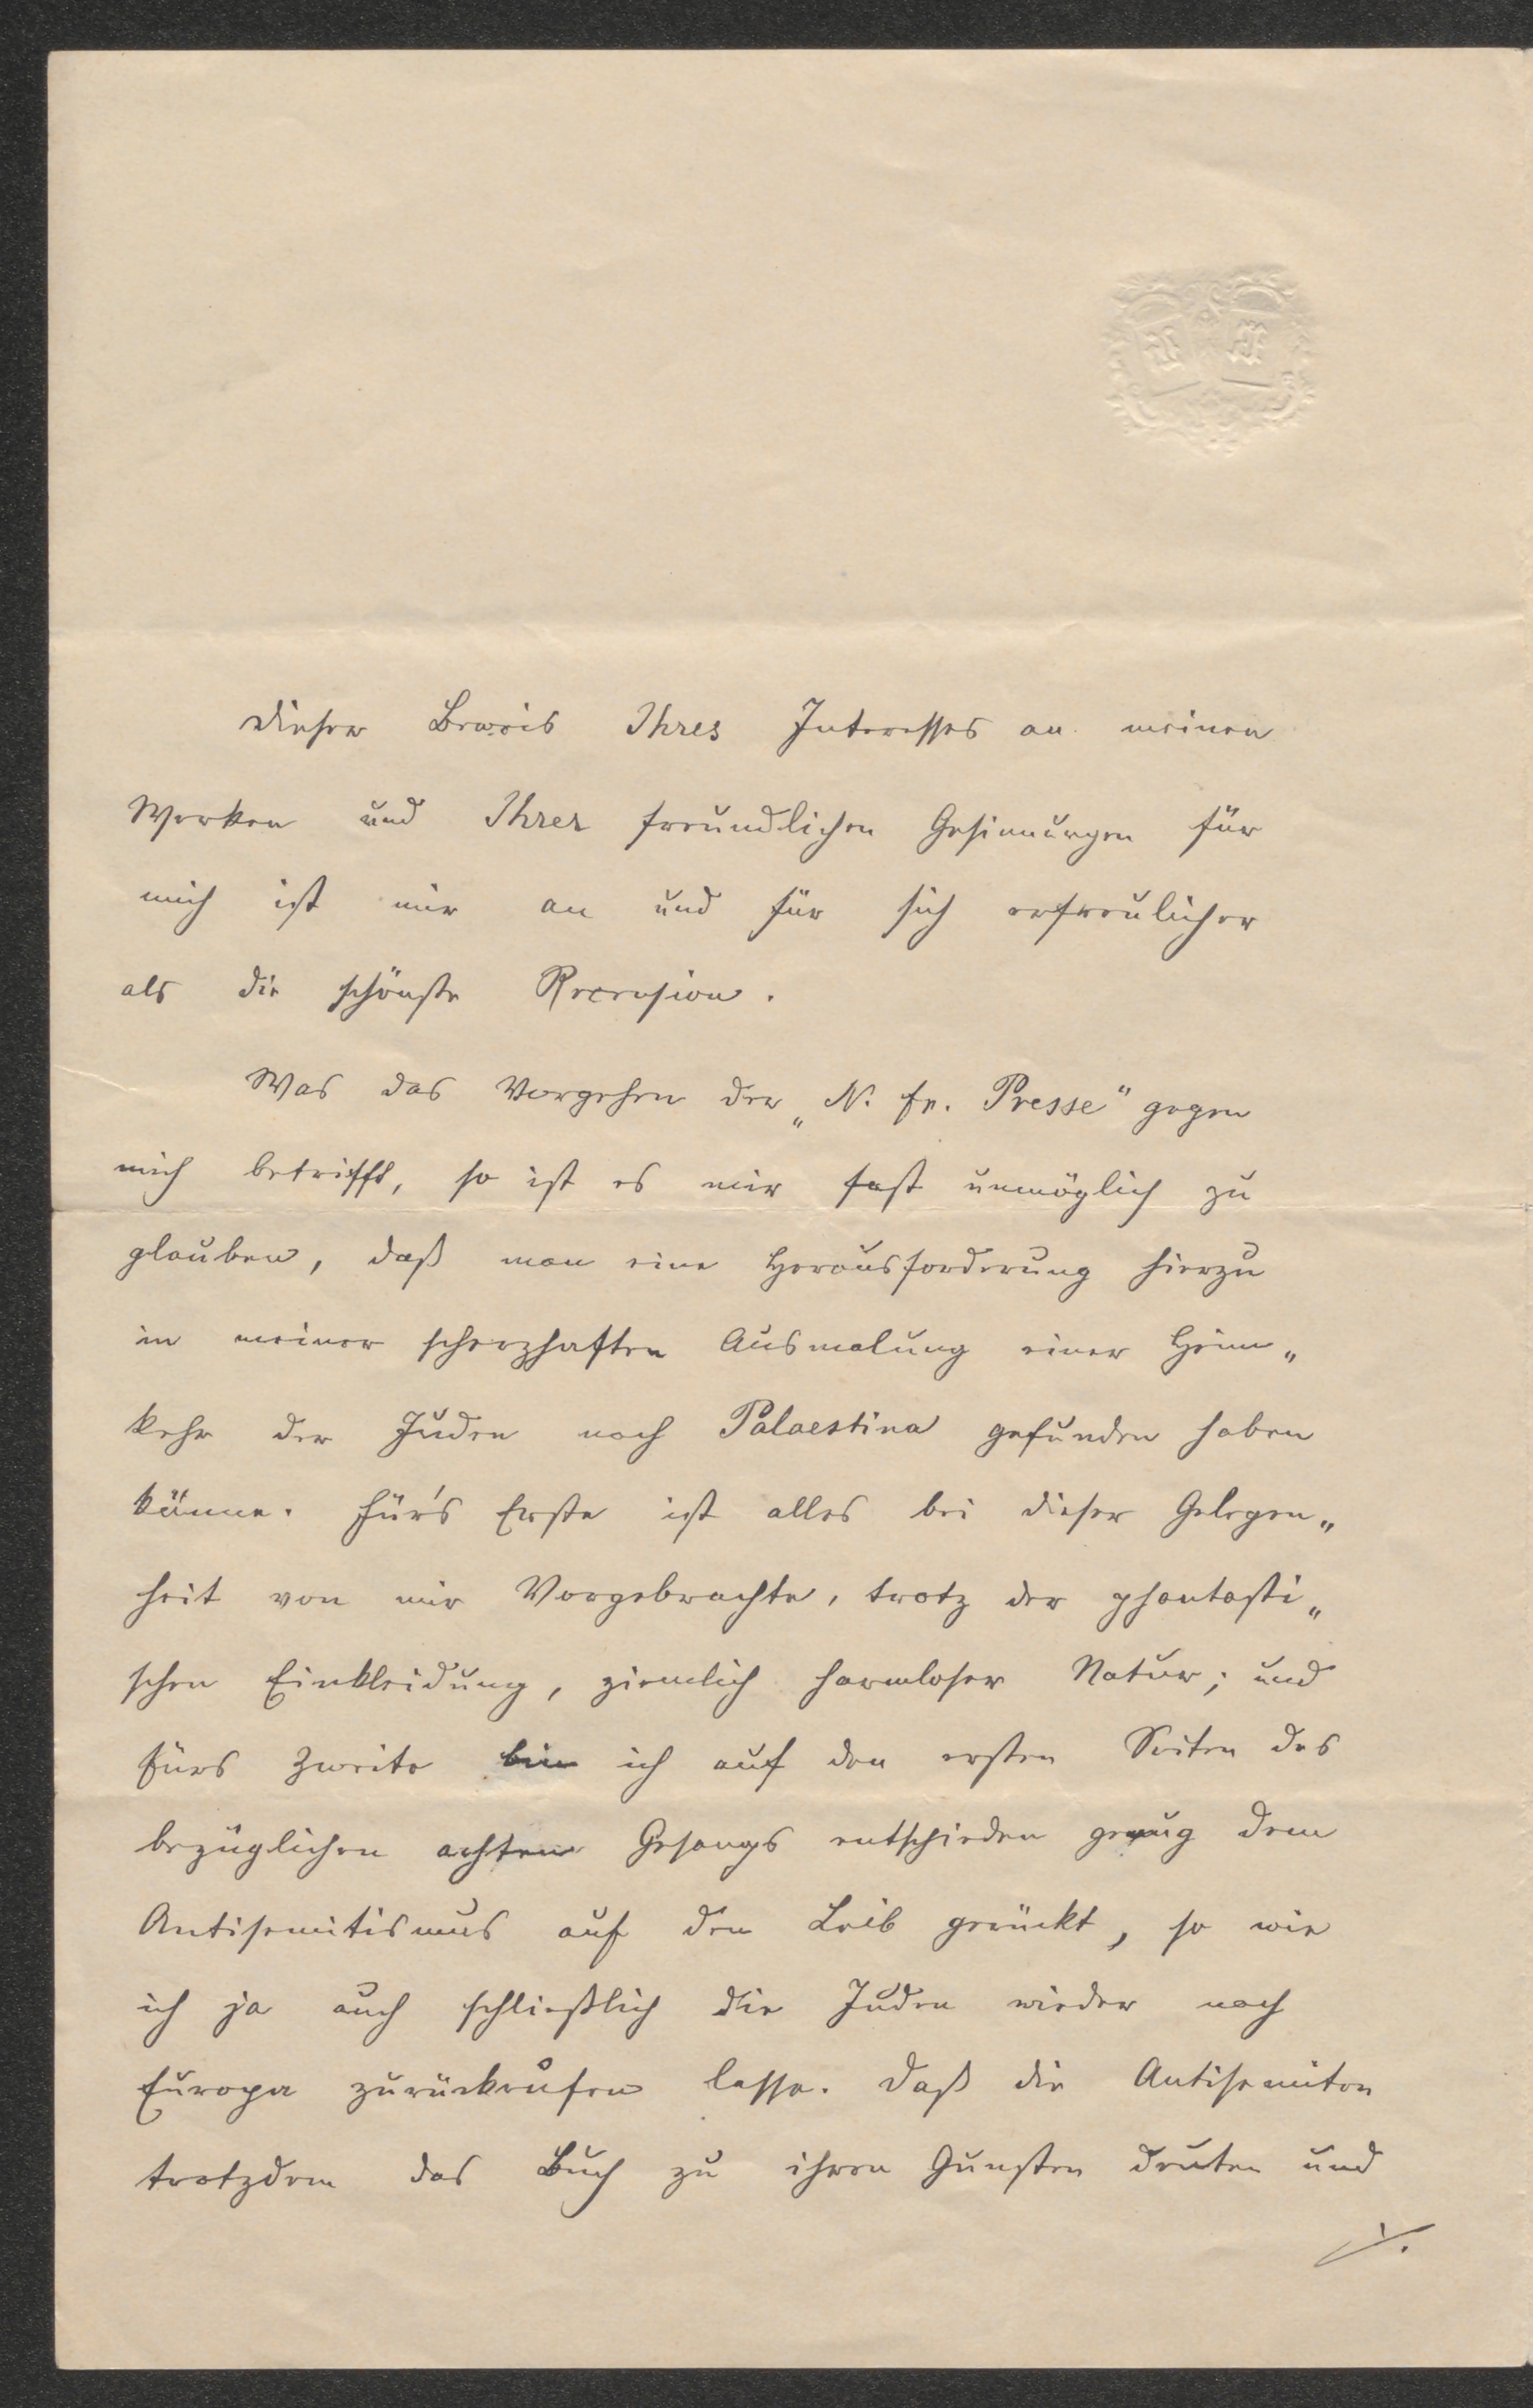 Dieser Beweis Ihres Interesses an meinen
Werken und Ihrer freundlichen Gesinnungen für
mich ist mir an und für sich erfreulicher
als die schönste Recension.
Was das Vorgehen der „N. fr. Presse" gegen
mich betrifft, so ist es mir fast unmöglich zu
glauben, daß man eine Herausforderung hierzu
in meiner scherzhaften Ausmalung einer Heim„
kehr der Juden nach Palaestina gefunden haben
könne. Für's Erste ist alles bei dieser Gelegen„
heit von mir Vorgebrachte, trotz der phantasti„
schen Einkleidung, ziemlich harmloser Natur; und
fürs Zweite bin ich auf den ersten Seiten des
bezüglichen achten Gesangs entschieden genug dem
Antisemitismus auf den Leib gerückt, so wie
ich ja auch schließlich die Juden wieder nach
Europa zurückrufen lasse. Daß die Antisemiten
trotzdem das Buch zu ihren Gunsten deuten und
./.